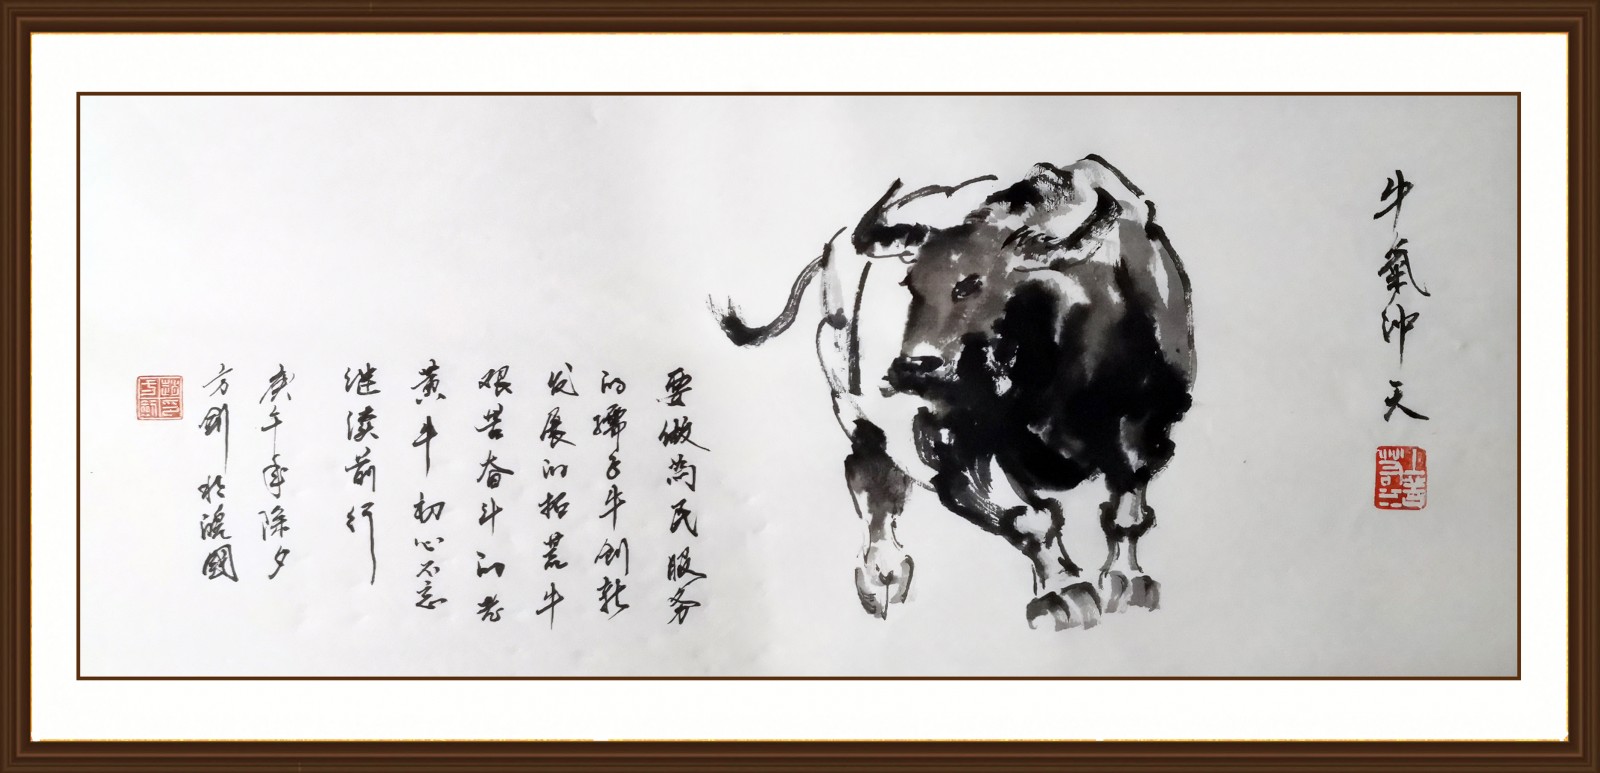 牛氣沖天
要做为民服务
的孺子牛创新
发展的拓荒牛
艰苦奋斗的老
黄牛初心不忘
继续前行
庚午年除夕
方剑於皖國